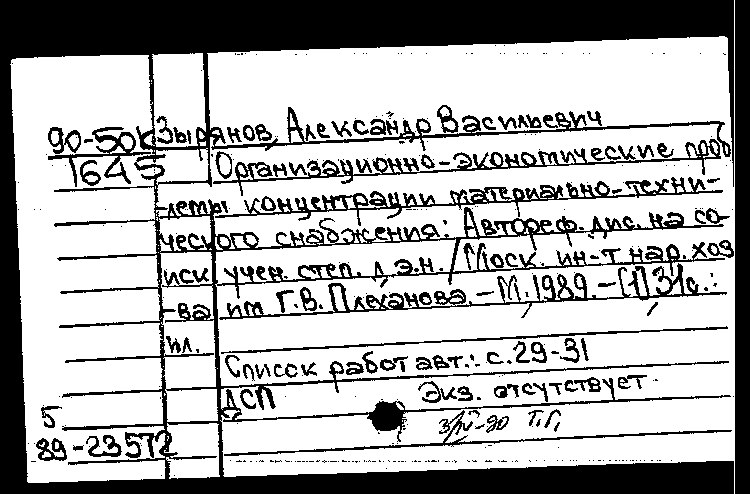 90-50к Зырянов, Александр Васильевич
1645 Организационно-экономические проб
лемы концентрации материально-техни-
ческого снабжения: Автореф. дис. на со-
иск. учен. степ. д.э.н. / Моск. ин-т нар. хоз
-ва им Г.В. Плеханова. - М., 1989. - [1] 31с.:
ил.
Список работ авт.: с. 29-31
ДСП Экз. отсутствует
5
89-23572